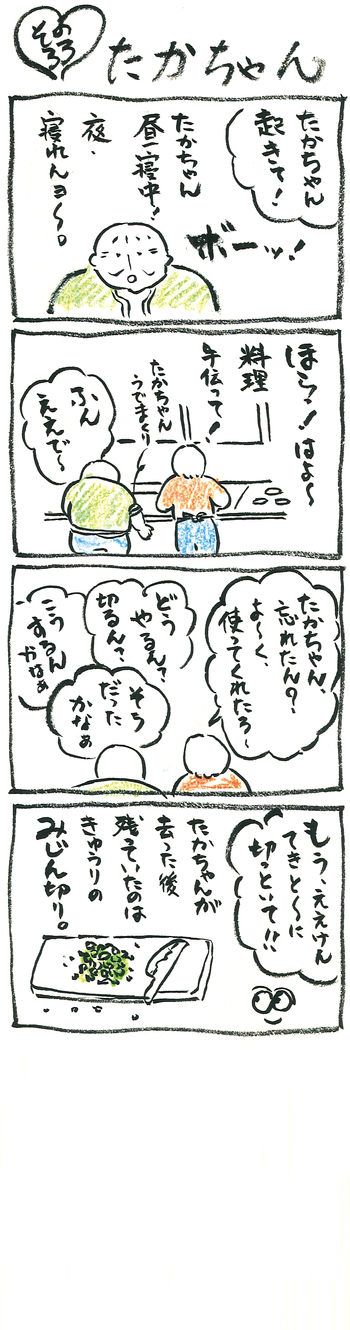 たかちゃん
たかちゃん
起きて!
ボーッ!
たかちゃん
昼寝中!
夜、
寝れんヨ〜。
ほらっ!はよ〜
料理
手伝って!
たかちゃん
うでまくり
ふん
ええで〜
たかちゃん、
忘れたん?
よ〜く、
使ってくれたろ〜
どう
やるん?
切るん?
そう
だった
かなぁ
こう
するん
かなぁ
もう、ええけん
てきと〜に
切っといて!!
たかちゃんが
去った後
残っていたのは
きゅうりの
みじん切り。